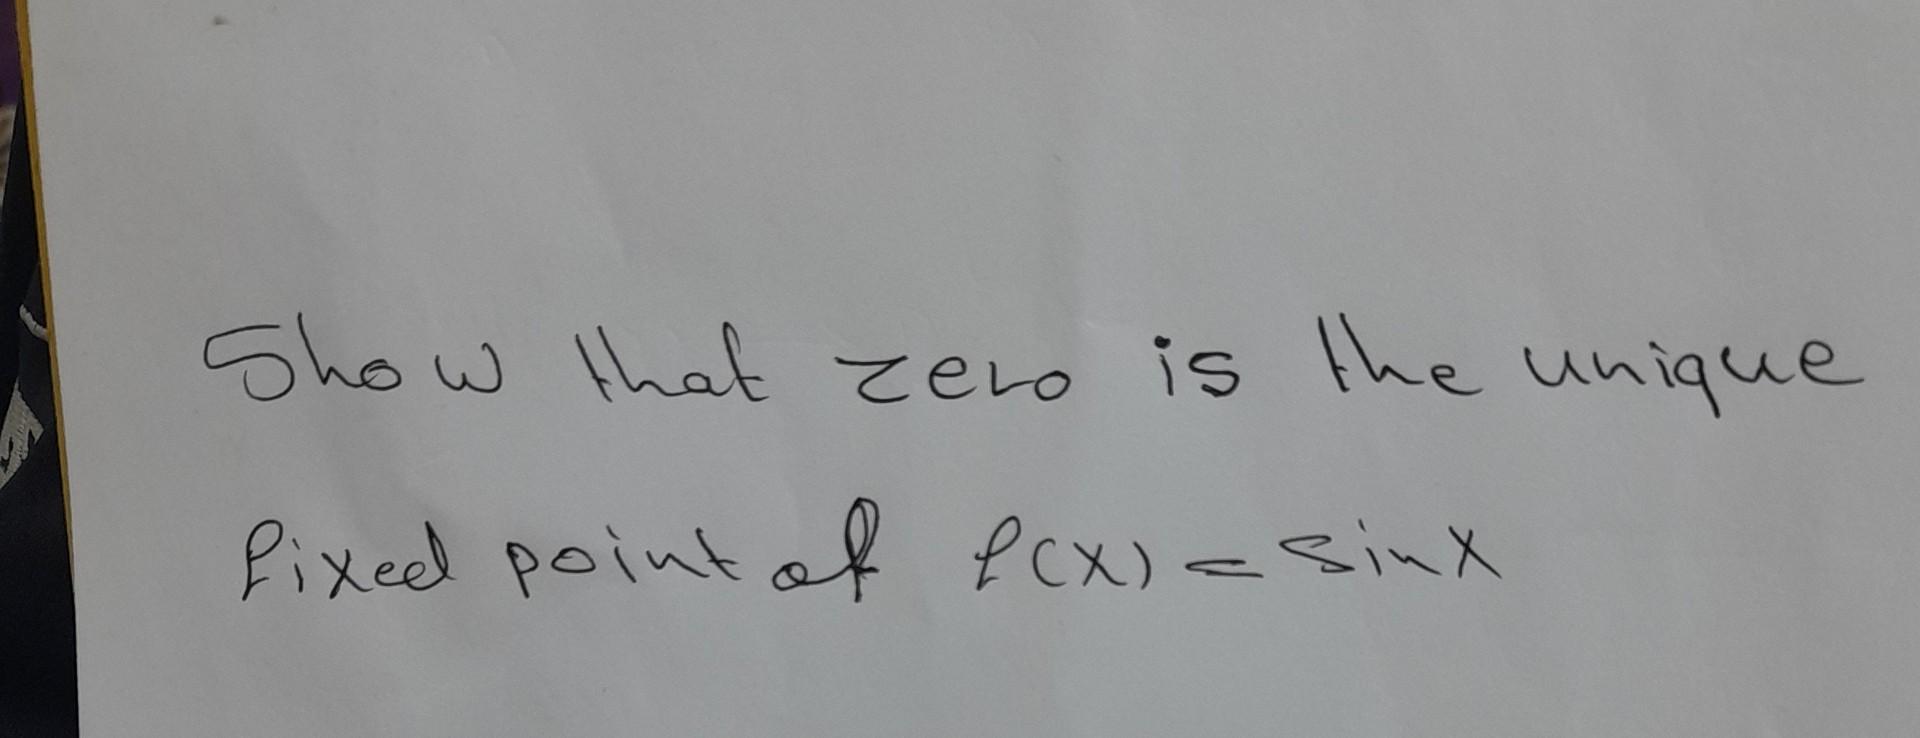 Show that zero is the unique
fixed point of f(x) = sinx